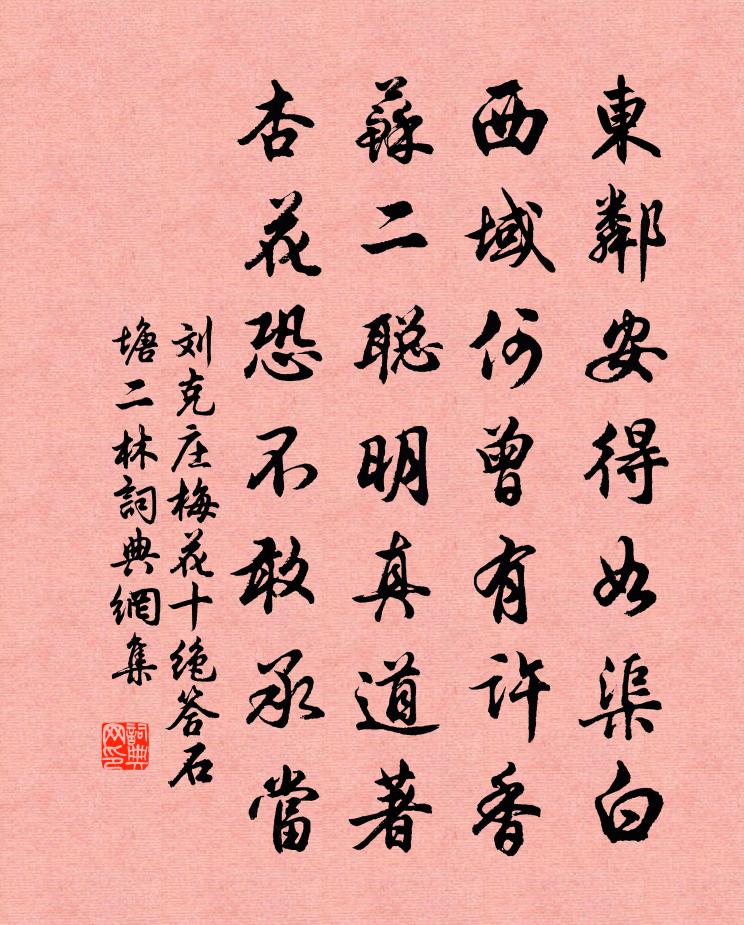 東鄰安得如渠白
西域何曾有許香
蘇二聪明真道著
杏花恐不敢承當
刘克庄梅花十绝答石
塘二林詞典網集
詞典
网印